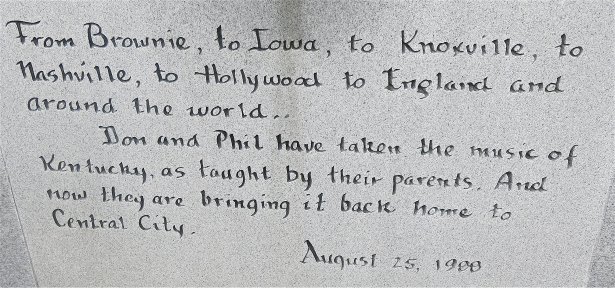 From Brownie, to Iowa, to Knoxville, to
Nashville, to Hollywood to England and
around the world..
Don and Phil have taken the music of
Kentucky, as taught by their parents. And
now they are bringing it back home to
Central City.
August 25, 1988